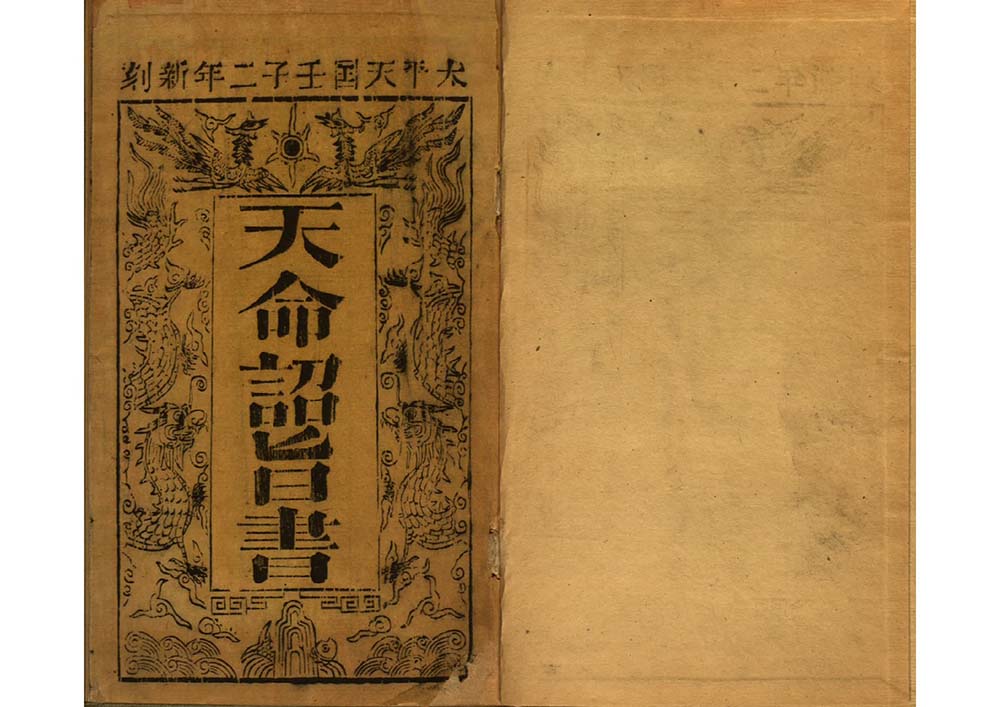 太平天囯壬子二年新刻
天命詔旨書